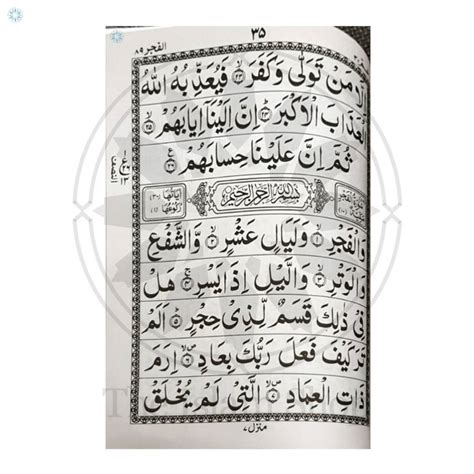 الفجر ٨٩
٣٥
اِلَّا مَنْ تَوَلّٰى وَكَفَرَ ﴿٢٣﴾ فَيُعَذِّبُهُ اللّٰهُ
الْعَذَابَ الْاَكْبَرَ ﴿٢٤﴾ اِنَّ اِلَيْنَاۤ اِيَابَهُمْ ﴿٢٥﴾
ثُمَّ اِنَّ عَلَيْنَا حِسَابَهُمْ ﴿٢٦﴾
اٰيَاتُهَا (٣٠)
رُكُوْعُهَا (١)
بِسْمِ اللّٰهِ الرَّحْمٰنِ الرَّحِيْمِ
وَالْفَجْرِ ﴿١﴾ وَلَيَالٍ عَشْرٍ ﴿٢﴾ وَّالشَّفْعِ
وَالْوَتْرِ ﴿٣﴾ وَالَّيْلِ اِذَا يَسْرِ ﴿٤﴾ هَلْ
فِيْ ذٰلِكَ قَسَمٌ لِّذِيْ حِجْرٍ ﴿٥﴾ اَلَمْ
تَرَ كَيْفَ فَعَلَ رَبُّكَ بِعَادٍ ﴿٦﴾ اِرَمَ
ذَاتِ الْعِمَادِ ﴿٧﴾ الَّتِيْ لَمْ يُخْلَقْ
منزل ٧